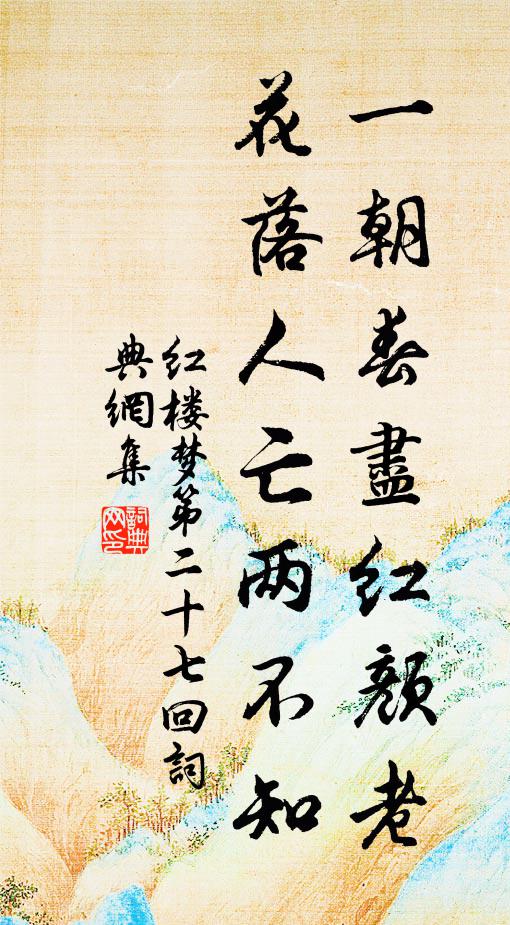 一朝春盡红颜老
花落人亡两不知
红楼梦第二十七回詞
典網集
詞典
网印